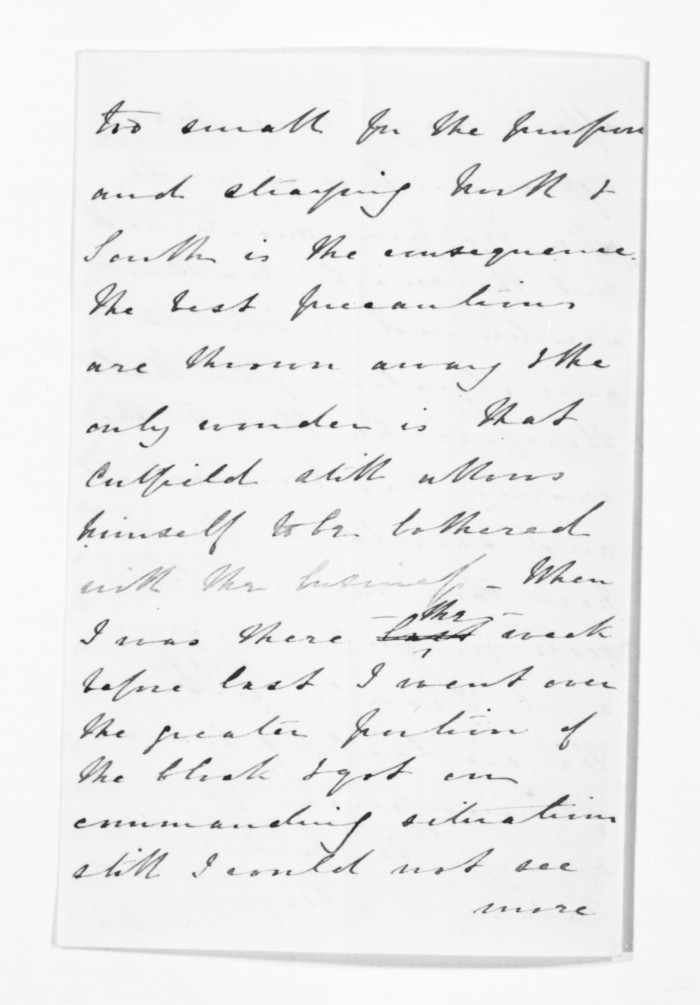 too small for the purpose
and straying North &
South is the consequence.
The best precautions
are thrown away & the
only wonder is that
Cutfield still allows
himself to be bothered
with the business - When
I was there - last the - week
before last I went over
the greater portion of
the block & got on
commanding situations
still I could not see
more